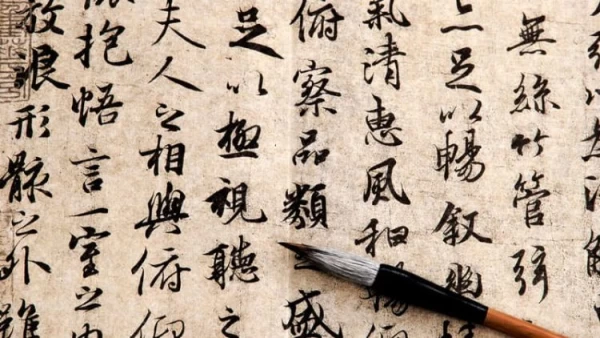 以為流
無絲竹管弦之
亦足以暢叙幽情
氣清惠風和暢仰
俯察品類之盛
足以極視聽之
夫人之相與俯仰
抱悟言一室之内
放浪形骸之外雖